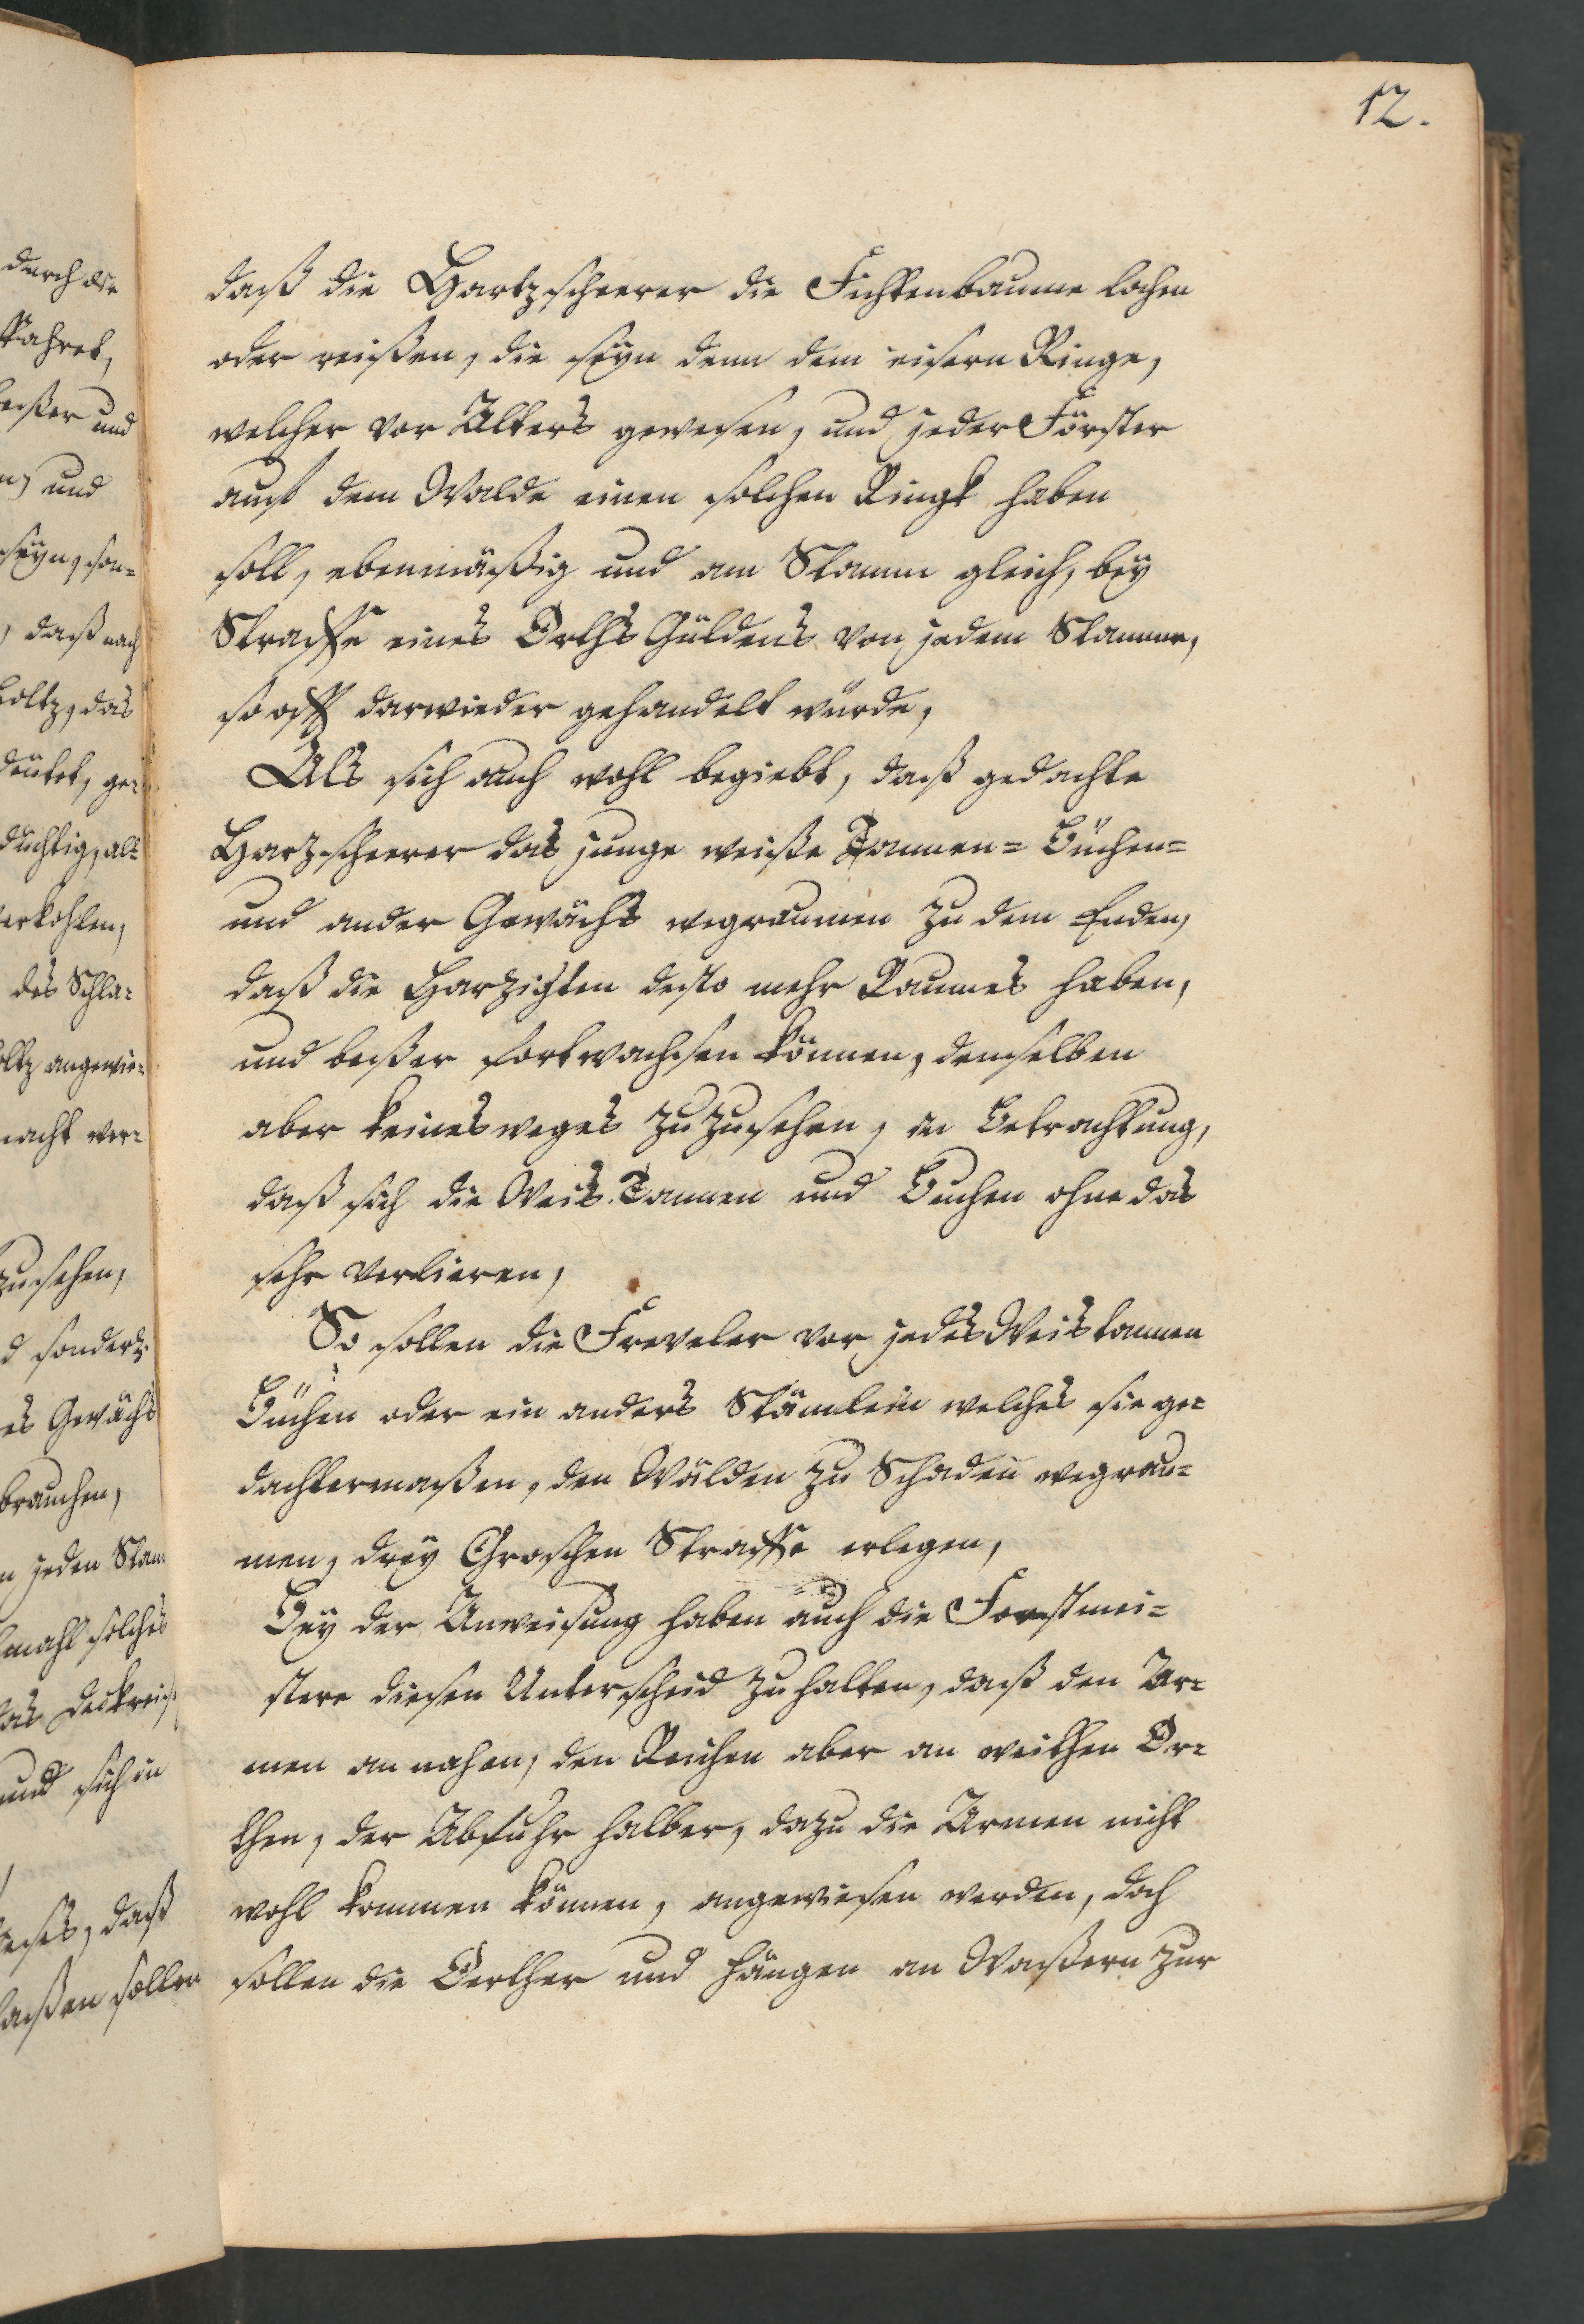 12.
durch die
daß die Hartzscheerer die Fichtenbaume lochen
oder reißen, die seyn denn dem eisern Ringe,
welcher vor Alters gewesen, und jeder Förster
auf dem Walde einen solchen Ringk haben
soll, ebenmäßig und am Stamm gleich, bey
Straffe eines Orths Güldens von jedem Stamme,
so offt darwieder gehandelt würde,
Als sich auch wohl begiebt, daß gedachte
Harz-scheerer das junge weiße Tannen= Büchen=
und ander Gewächs wegraumen zu dem Enden,
daß die Harzigten desto mehr Raumes haben,
und beßer fortwachsen können, demselben
aber keinesweges zuzusehen, in Betrachtung,
daß sich die Weis-Tannen und Buchen ohne das
sehr verlieren,
So sollen die Freveler vor jedes Weistannen
Büchen oder ein anders Stämlein welches sie ge=
dachtermaßen, den Wälden zu Schaden wegrau=
men, drey Groschen Straffe erlegen,
Bey der Anweisung haben auch die Forstmei=
stere diesen Unterscheid zuhalten, daß den Ar=
men an nahen, den Reichen aber an weithen Or=
then, der Abfuhr halber, dazu die Armen nicht
wohl kommen können, angewiesen werden, doch
sollen die Oerther und Hängen an Waßern zur
und
und
seyn, son=
, daß nach
holtz, das
deutet, ge=
düchtig, als
verkohlen,
des Schla=
holtz angewie=
macht wer=
zusehen,
es Gewächs
brauchen,
jeden Stam
mahl solches
und sich in
daß
laßen sollen